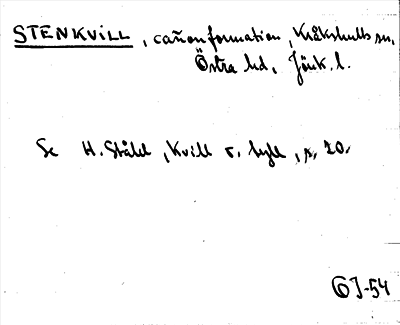 STENKVILL, cañonformation, Kråkshults sn,
Östra hd, Jönk. l.
Se H. Ståhl, Kvill o. hyll, s. 20.
GJ-54